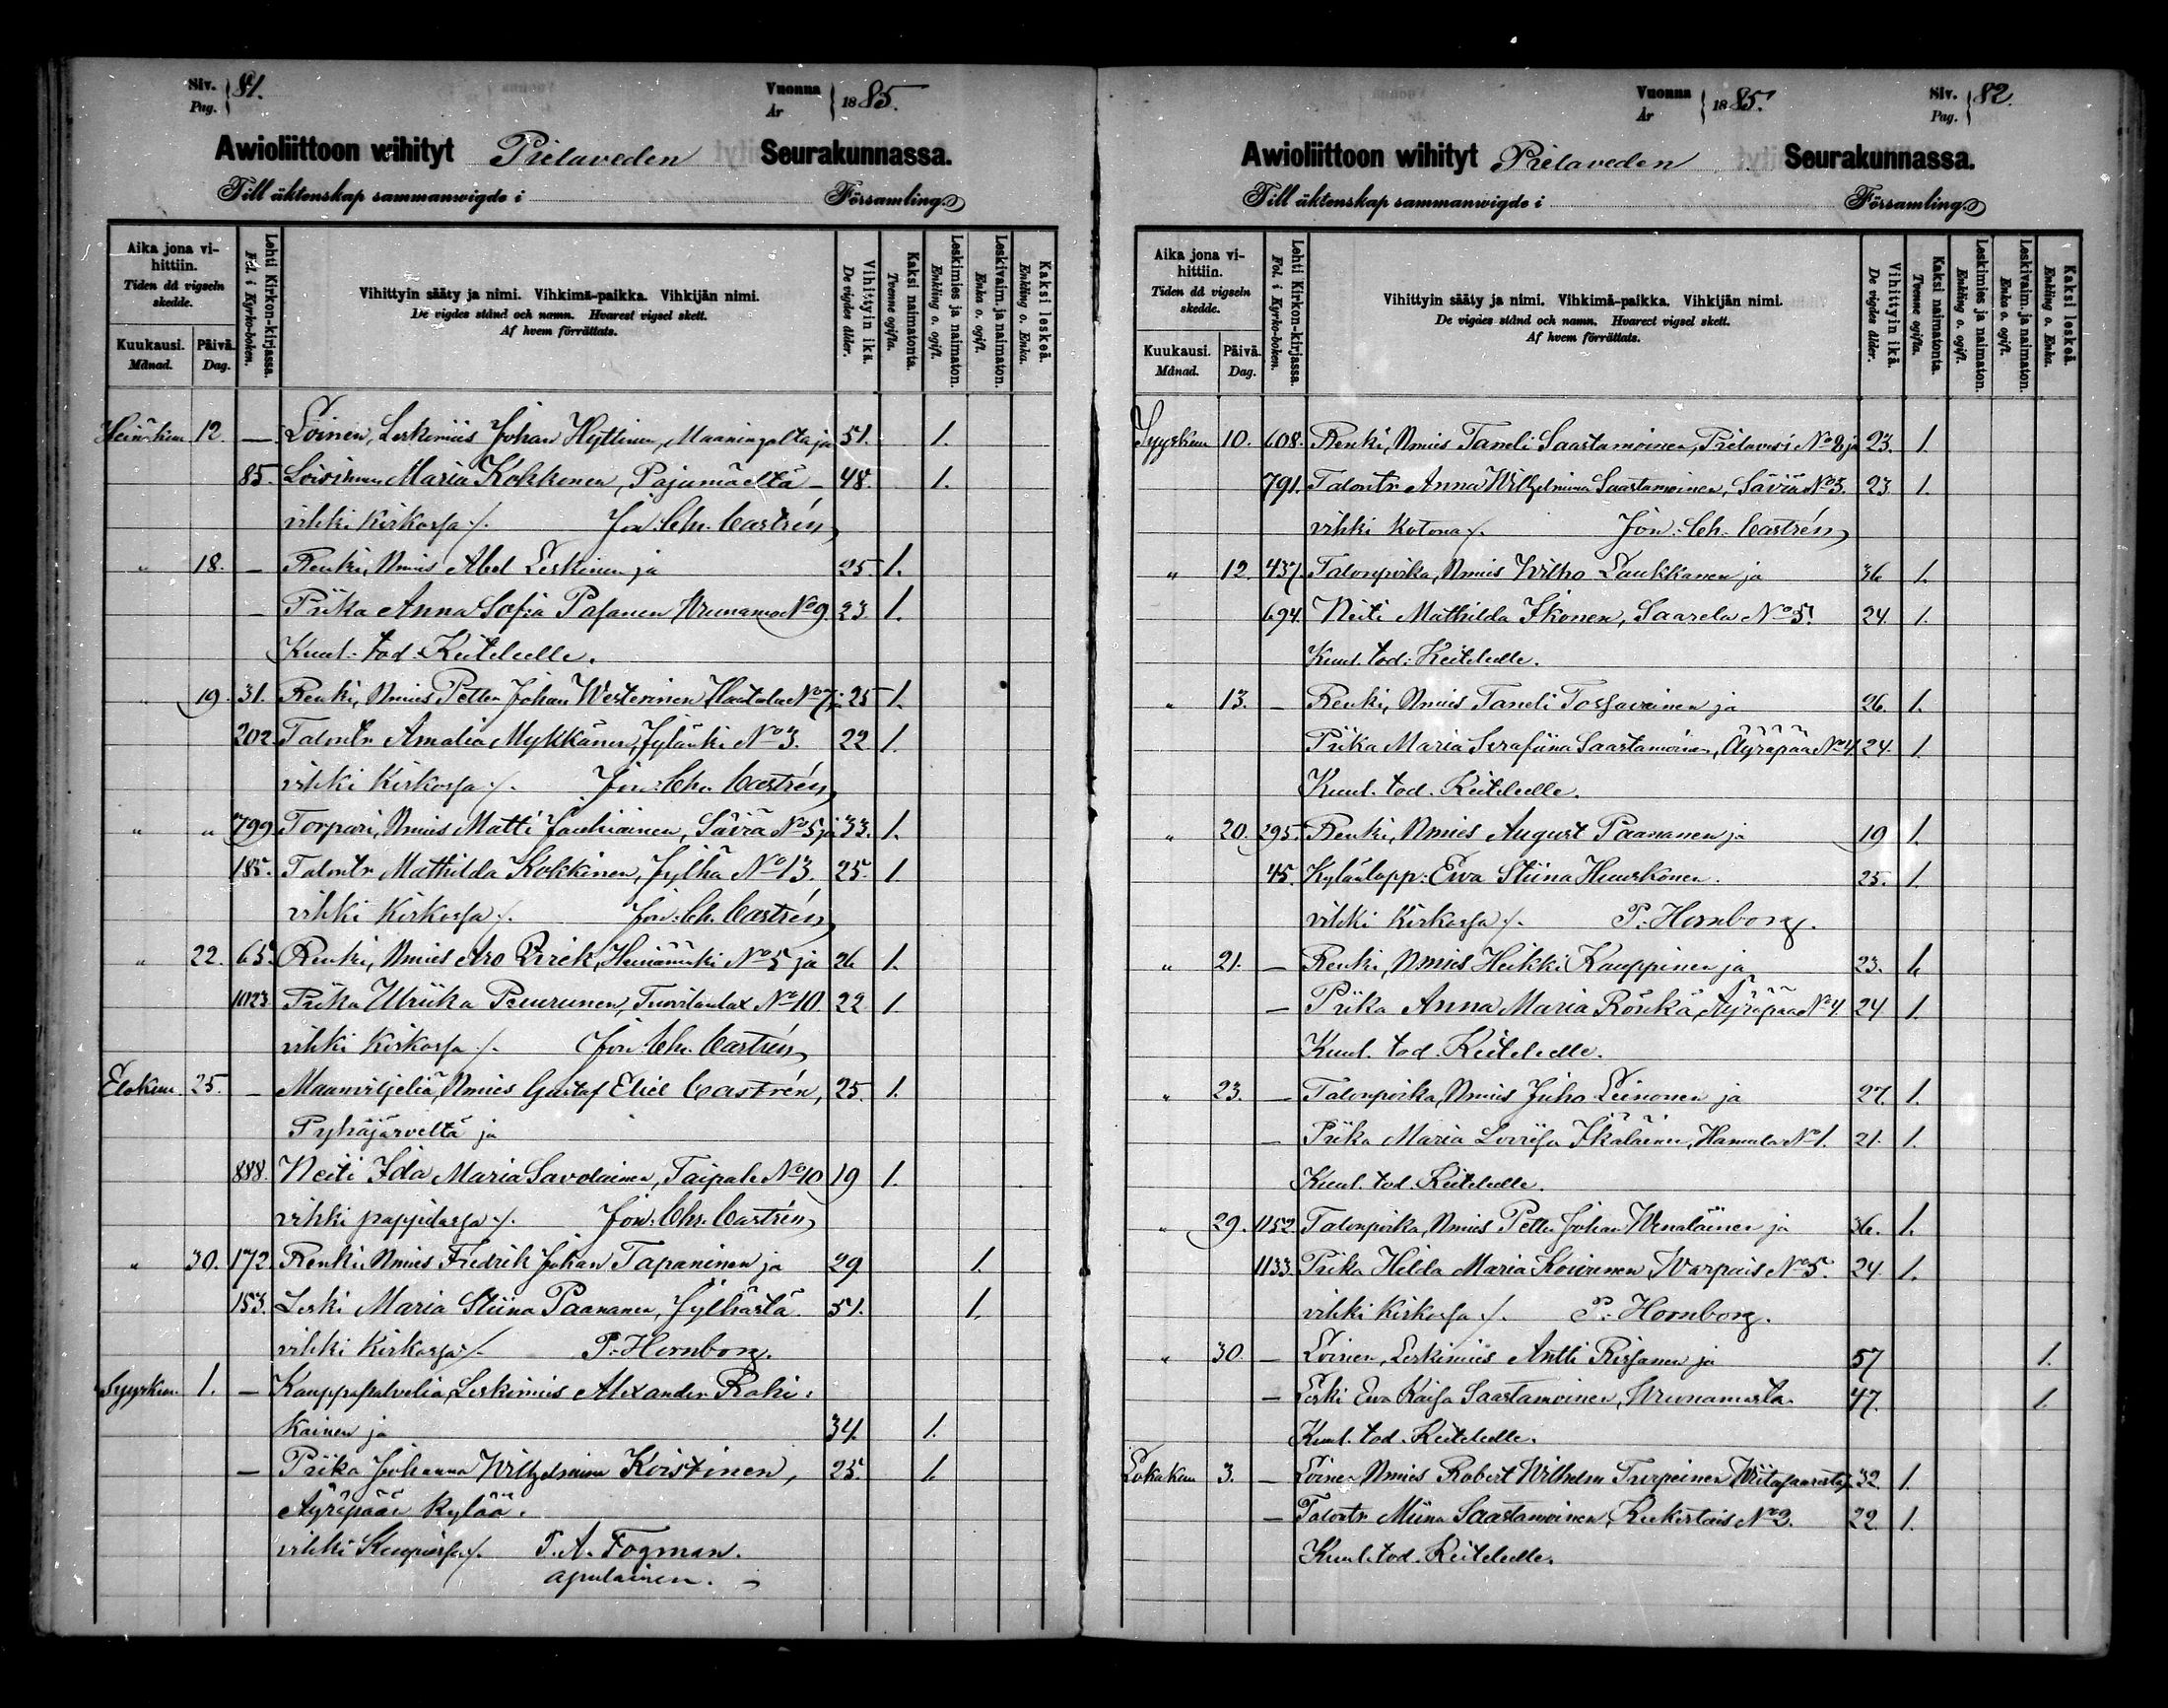 Siv. Pag. 81. Vuonna År 1885.
Awioliittoon wihityt Pielaveden Seurakunnassa.
Till äktenskap sammanwigde i Församling.
Aika jona vihittiin. Tiden då vigseln skedde.
Kuukausi. Månad. Päivä. Dag.
Lehti Kirkon-kirjassa. Fol. i Kyrko-boken.
Vihittyin sääty ja nimi. Vihkimä-paikka. Vihkijän nimi.
De vigdes stånd och namn. Hvarest vigsel skett.
Af hvem förrättats.
Vihittyin ikä. De vigdes ålder.
Kaksi naimatonta. Tvenne ogifta.
Leskimies ja naimaton. Enkling o. ogift.
Leskivaim. ja naimaton. Enka o. ogift.
Kaksi leskeä. Enkling o. Enka.
Heinäkuu 12. — Loinen, Leskimies Johan Hyttinen, Maaningalta ja 51. 1.
85. Loisinen Maria Kokkonen, Pajumäeltä — 48. 1.
vihki Kirkossa ./. Jon: Chr. Castrén
" 18. — Renki, Nmies Abel Leskinen ja 25. 1.
— Piika Anna Sofia Pasanen Wuonamo No 9. 23. 1.
Kuul. tod. Keiteleelle.
" 19. 31. Renki, Nmies Petter Johan Westerinen Hautala No 7 ja 25 1.
202. Talontr Amalia Mykkänen, Jylänki No 3. 22 1.
vihki Kirkossa ./. Jon: Chr. Castrén
" " 799. Torpari, Nmies Matti Jauhiainen, Säviä No 5 ja 33. 1.
185. Talontr Mathilda Kokkinen, Jylhä No 13. 25. 1.
vihki Kirkossa ./. Jon: Ch. Castrén
" 22. 65. Renki, Nmies Aro Eirek, Heinämäki No 5 ja 26 1.
1023. Piika Ulriika Puurunen, Tuovilanlax No 10. 22. 1.
vihki Kirkossa ./. Jon: Chr. Castrén
Elokuu. 25. — Maanviljeliä, Nmies Gustaf Eliel Castrén, 25. 1.
Pyhäjärveltä ja
888. Neiti Ida Maria Savolainen, Taipale No 10 19 1.
vihki pappilassa ./. Jon: Chr. Castrén
" 30. 172. Renki, Nmies Fredrik Johan Tapaninen ja 29 1.
153. Leski Maria Stiina Paananen, Jylhästä 51. 1.
vihki Kirkossa ./. P. Hornborg.
Syyskuu. 1. — Kauppapalvelia, Leskimies Alexander Roki:
kainen ja 34. 1.
— Piika Johanna Wilhelmina Koistinen, 25. 1.
Äyräpään kylää.
vihki Kuopiossa ./. T. A. Fogman.
apulainen. —
Vuonna År 1885. Siv. Pag. 82.
Awioliittoon wihityt Pielaveden Seurakunnassa.
Till äktenskap sammanwigde i Församling.
Aika jona vihittiin. Tiden då vigseln skedde.
Kuukausi. Månad. Päivä. Dag.
Lehti Kirkon-kirjassa. Fol. i Kyrko-boken.
Vihittyin sääty ja nimi. Vihkimä-paikka. Vihkijän nimi.
De vigdes stånd och namn. Hvarest vigsel skett.
Af hvem förrättats.
Vihittyin ikä. De vigdes ålder.
Kaksi naimatonta. Tvenne ogifta.
Leskimies ja naimaton. Enkling o. ogift.
Leskivaim. ja naimaton. Enka o. ogift.
Kaksi leskeä. Enkling o. Enka.
Syyskuu 10. 608. Renki, Nmies Taneli Saastamoinen, Pielavesi No 8 ja 23. 1.
791. Talontr Anna Wilhelmina Saastamoinen, Säviä No 3. 23 1.
vihki Kotona ./. Jon: Ch. Castrén
" 12. 437. Talonpoika, Nmies Wilho Laukkanen ja 36 1.
694. Neiti Mathilda Ikonen, Saarela No 5. 24. 1.
Kuul. tod: Keiteleelle.
" 13. — Renki, Nmies Taneli Tossavainen ja 26. 1.
Piika Maria Serafiina Saastamoinen, Äyräpää No 4. 24. 1.
Kuul. tod. Keiteleelle.
" 20. 295. Renki, Nmies August Paananen ja 19 1.
45. Kylänlapp: Ewa Stiina Huuskonen. 25. 1.
vihki Kirkossa ./. P. Hornborg.
" 21. — Renki, Nmies Heikki Kauppinen ja 23. 1.
— Piika Anna Maria Rönkä, Äyräpää No 4 24 1.
Kuul. tod. Keiteleelle.
" 23. — Talonpoika, Nmies Juho Leinonen ja 27. 1.
— Piika Maria Loviisa Ikäläinen, Hamula No 1. 21. 1.
Kuul. tod. Keiteleelle.
" 29. 1152. Talonpoika, Nmies Petter Johan Wenäläinen ja 36. 1.
1133. Piika Hilda Maria Kouvunen, Warpais No 5. 24. 1.
vihki Kirkossa ./. P. Hornborg.
" 30. — Loinen, Leskimies Antti Rissanen ja 57 1.
— Leski Ewa Kaisa Saastamoinen, Wuonamosta. 47. 1.
Kuul. tod. Keiteleelle.
Lokakuu 3. — Loinen Nmies Robert Wilhelm Turpeinen, Wiitasaarelta ja 32. 1.
— Talontr Miina Saastamoinen, No 2. 22. 1.
Kuul. tod. Keiteleelle.